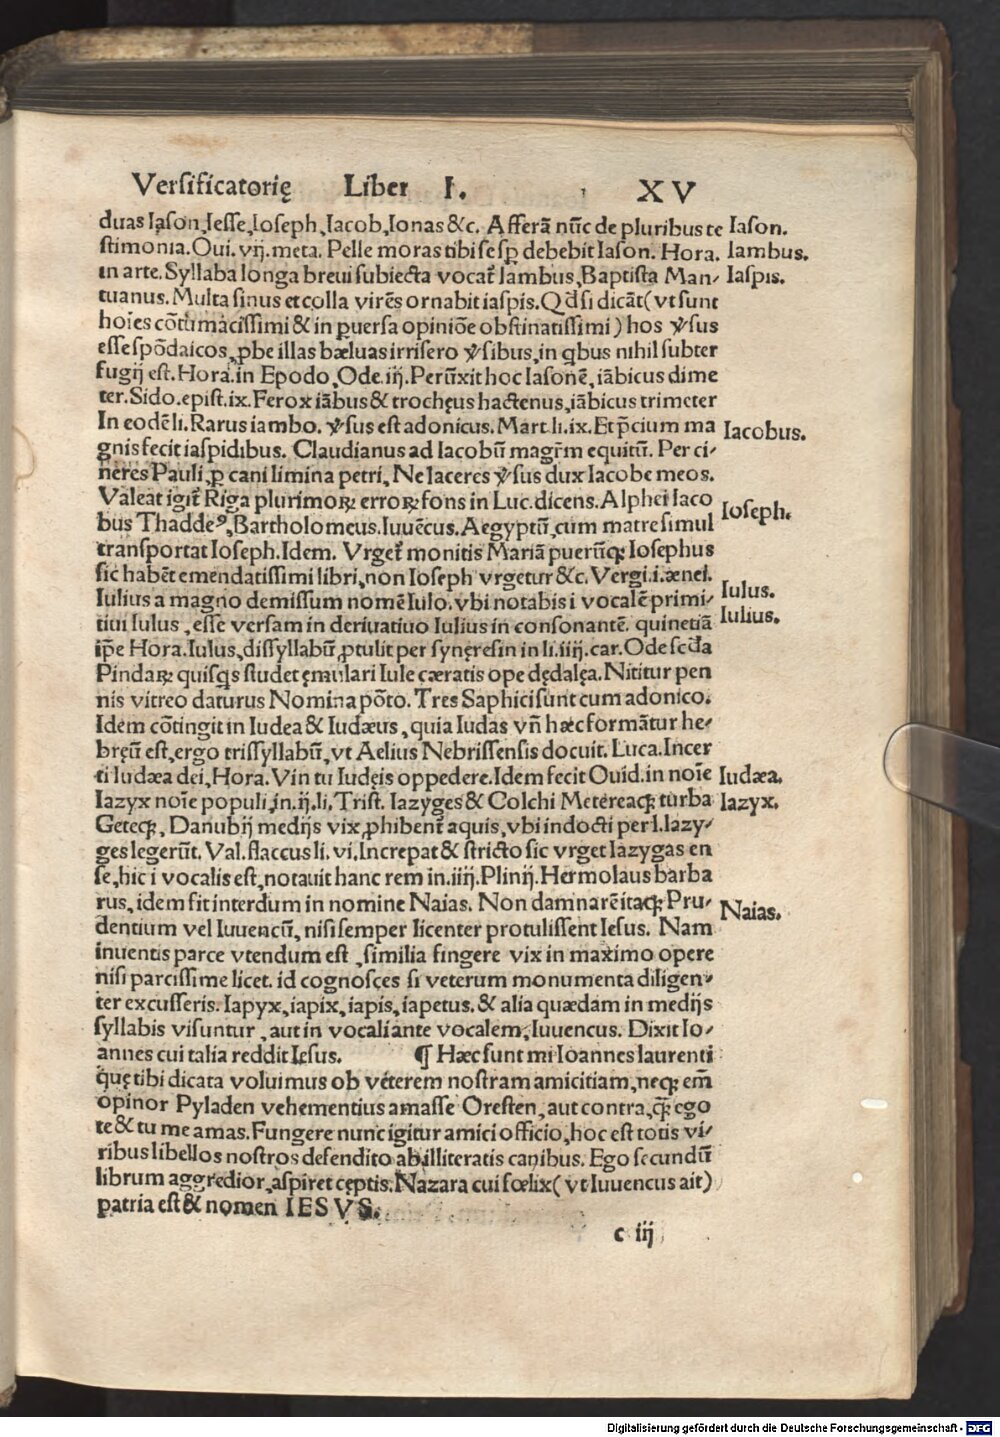 Versificatorię Liber I. XV
duas Iason, Iesse, Ioseph, Iacob, Ionas &c. Afferā nūc de pluribus te Iason.
stimonia. Oui. vij. meta. Pelle moras tibi se sp̄ debebit Iason. Hora. Iambus.
in arte. Syllaba longa breui subiecta vocat᷑ Iambus, Baptista Man⸗ Iaspis.
tuanus. Multa sinus et colla virēs ornabit iaspis. Qd̄ si dicāt (vt sunt
hoīes cōtumacissimi & in puersa opiniōe obstinatissimi) hos ꝟsus
esse spōdaicos, ꝓbe illas bæluas irrisero ꝟsibus, in qbus nihil subter
fugij est. Hora. in Epodo, Ode. iij. Perūxit hoc Iasonē, iābicus dime
ter. Sido. epist. ix. Ferox iābus & trochęus hactenus, iābicus trimeter
In eodē li. Rarus iambo. ꝟsus est adonicus. Mart. li. ix. Et p̄cium ma
gnis fecit iaspidibus. Claudianus ad Iacobū magr̄m equitū. Per ci⸗ Iacobus.
neres Pauli, ꝑ cani limina petri, Ne laceres ꝟsus dux Iacobe meos.
Valeat igit᷑ Riga plurimoꝝ erroꝝ fons in Luc. dicens. Alphei Iaco
bus Thaddeꝰ, Bartholomeus. Iuuēcus. Aegyptū, cum matre simul Ioseph.
transportat Ioseph. Idem. Vrget᷑ monitis Mariā puerūqꝫ Iosephus
sic habēt emendatissimi libri, non Ioseph vrgetur &c. Vergi. i. ænei.
Iulius a magno demissum nomē Iulo. vbi notabis i vocalē primi⸗ Iulus.
tiui Iulus, esse versam in deriuatiuo Iulius in consonantē. quinetiā Iulius.
ip̄e Hora. Iulus, dissyllabū, ꝓtulit per synęresin in li. iiij. car. Ode sc̄da
Pindaꝝ quisqs studet ęmulari Iule cæratis ope dędalęa. Nititur pen
nis vitreo daturus Nomina pōto. Tres Saphici sunt cum adonico.
Idem cōtingit in Iudea & Iudæus, quia Iudas vn̄ hæc formātur he⸗
bręū est, ergo trissyllabū, vt Aelius Nebrissensis docuit. Luca. Incer
ti Iudæa dei, Hora. Vin tu Iudęis oppedere. Idem fecit Ouid. in noīe Iudæa.
Iazyx noīe populi, in. ij. li. Trist. Iazyges & Colchi Metereaqꝫ turba Iazyx.
Geteqꝫ, Danubij medijs vix ꝓhibent᷑ aquis, vbi indocti per l. lazy⸗
ges legerūt. Val. flaccus li. vi. Increpat & stricto sic vrget Iazygas en
se, hic i vocalis est, notauit hanc rem in. iiij. Plinij. Hermolaus barba
rus, idem fit interdum in nomine Naias. Non damnarē itaqꝫ Pru⸗ Naias.
dentium vel Iuuencū, nisi semper licenter protulissent Iesus. Nam
inuentis parce vtendum est, similia fingere vix in maximo opere
nisi parcissime licet. id cognosces si veterum monumenta diligen⸗
ter excusseris. Iapyx, iapix, iapis, iapetus. & alia quædam in medijs
syllabis visuntur, aut in vocali ante vocalem, Iuuencus. Dixit Io⸗
annes cui talia reddit Iesus. ¶ Hæc sunt mi Ioannes laurenti
quę tibi dicata voluimus ob veterem nostram amicitiam, neqꝫ em̄
opinor Pyladen vehementius amasse Oresten, aut contra, qꝫ̄ ego
te & tu me amas. Fungere nunc igitur amici officio, hoc est totis vi⸗
ribus libellos nostros defendito ab illiteratis canibus. Ego secundū
librum aggredior, aspiret cęptis. Nazara cui fœlix (vt Iuuencus ait)
patria est & nomen IESVS.
c iij
Digitalisierung gefördert durch die Deutsche Forschungsgemeinschaft - DFG